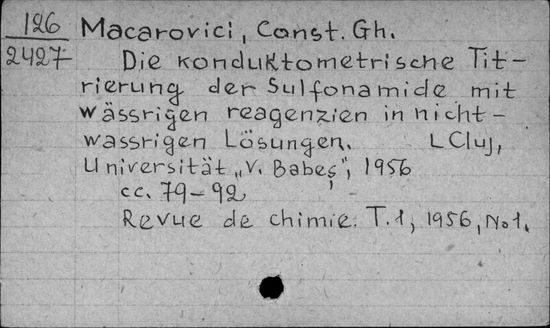 126 Macarovici, Const. Gh.
2427 Die konduktometrische Tit-
rierung der Sulfonamide mit
wässrigen reagenzien in nicht-
wassrigen Lösungen. LCluj,
Universität „V. Babeș", 1956
cc. 79-92
Revue de chimie. T.1, 1956, No1.